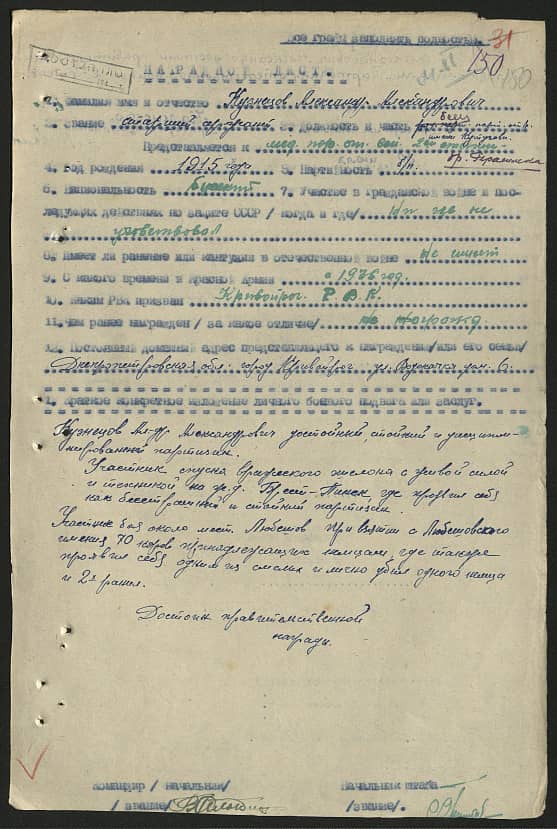 Все графы заполнять полностью.
31
150
150
НАГРАДНОЙ ЛИСТ
1. Фамилия имя и отчество Кузнецов Александр Александрович
2. Звание старший сержант 3. Должность и часть боец
Представляется к мед. пар. от. вой. 2ой степени
бр.
4. Год рождения 1915 года 5. Партийность б/п.
6. Национальность 7. Участие в гражданской войне и пос-
ледующих действиях по защите СССР / когда и где/ не
участвовал
8. Имеет ли ранение или контузии в отечественной войне не имеет
9. С какого времени в Красной Армии с 1936 год.
10. Каким РВК призван Криворог. Р.В.К.
11. Чем ранее награжден / за какие отличие/ не награжд.
12. Постоянный домашний адрес представляемого к награждению/или его семьи/
Днепропетровская обл. город Кривойрог ул. дом. 6.
1. Краткое конкретное изложение личного боевого подвига или заслуг.
Кузнецов Ал-др Александрович достойный, стойкий и дисципли-
нированный партизан.
Участник спуска вражеского эшелона с живой силой
и техникой на ж.д. Брест-Пинск, где проявил себя
как бесстрашный и стойкий партизан.
Участник боя около мест. Любешов при взятии с Любешовского
имения 70 коров принадлежащих немцам, где также
проявил себя одним из смелых и лично убил одного немца
и 2х ранил.
Достоин правительственной
награды.
Командир / начальник/
/ звание/
Начальник штаба
/звание/.